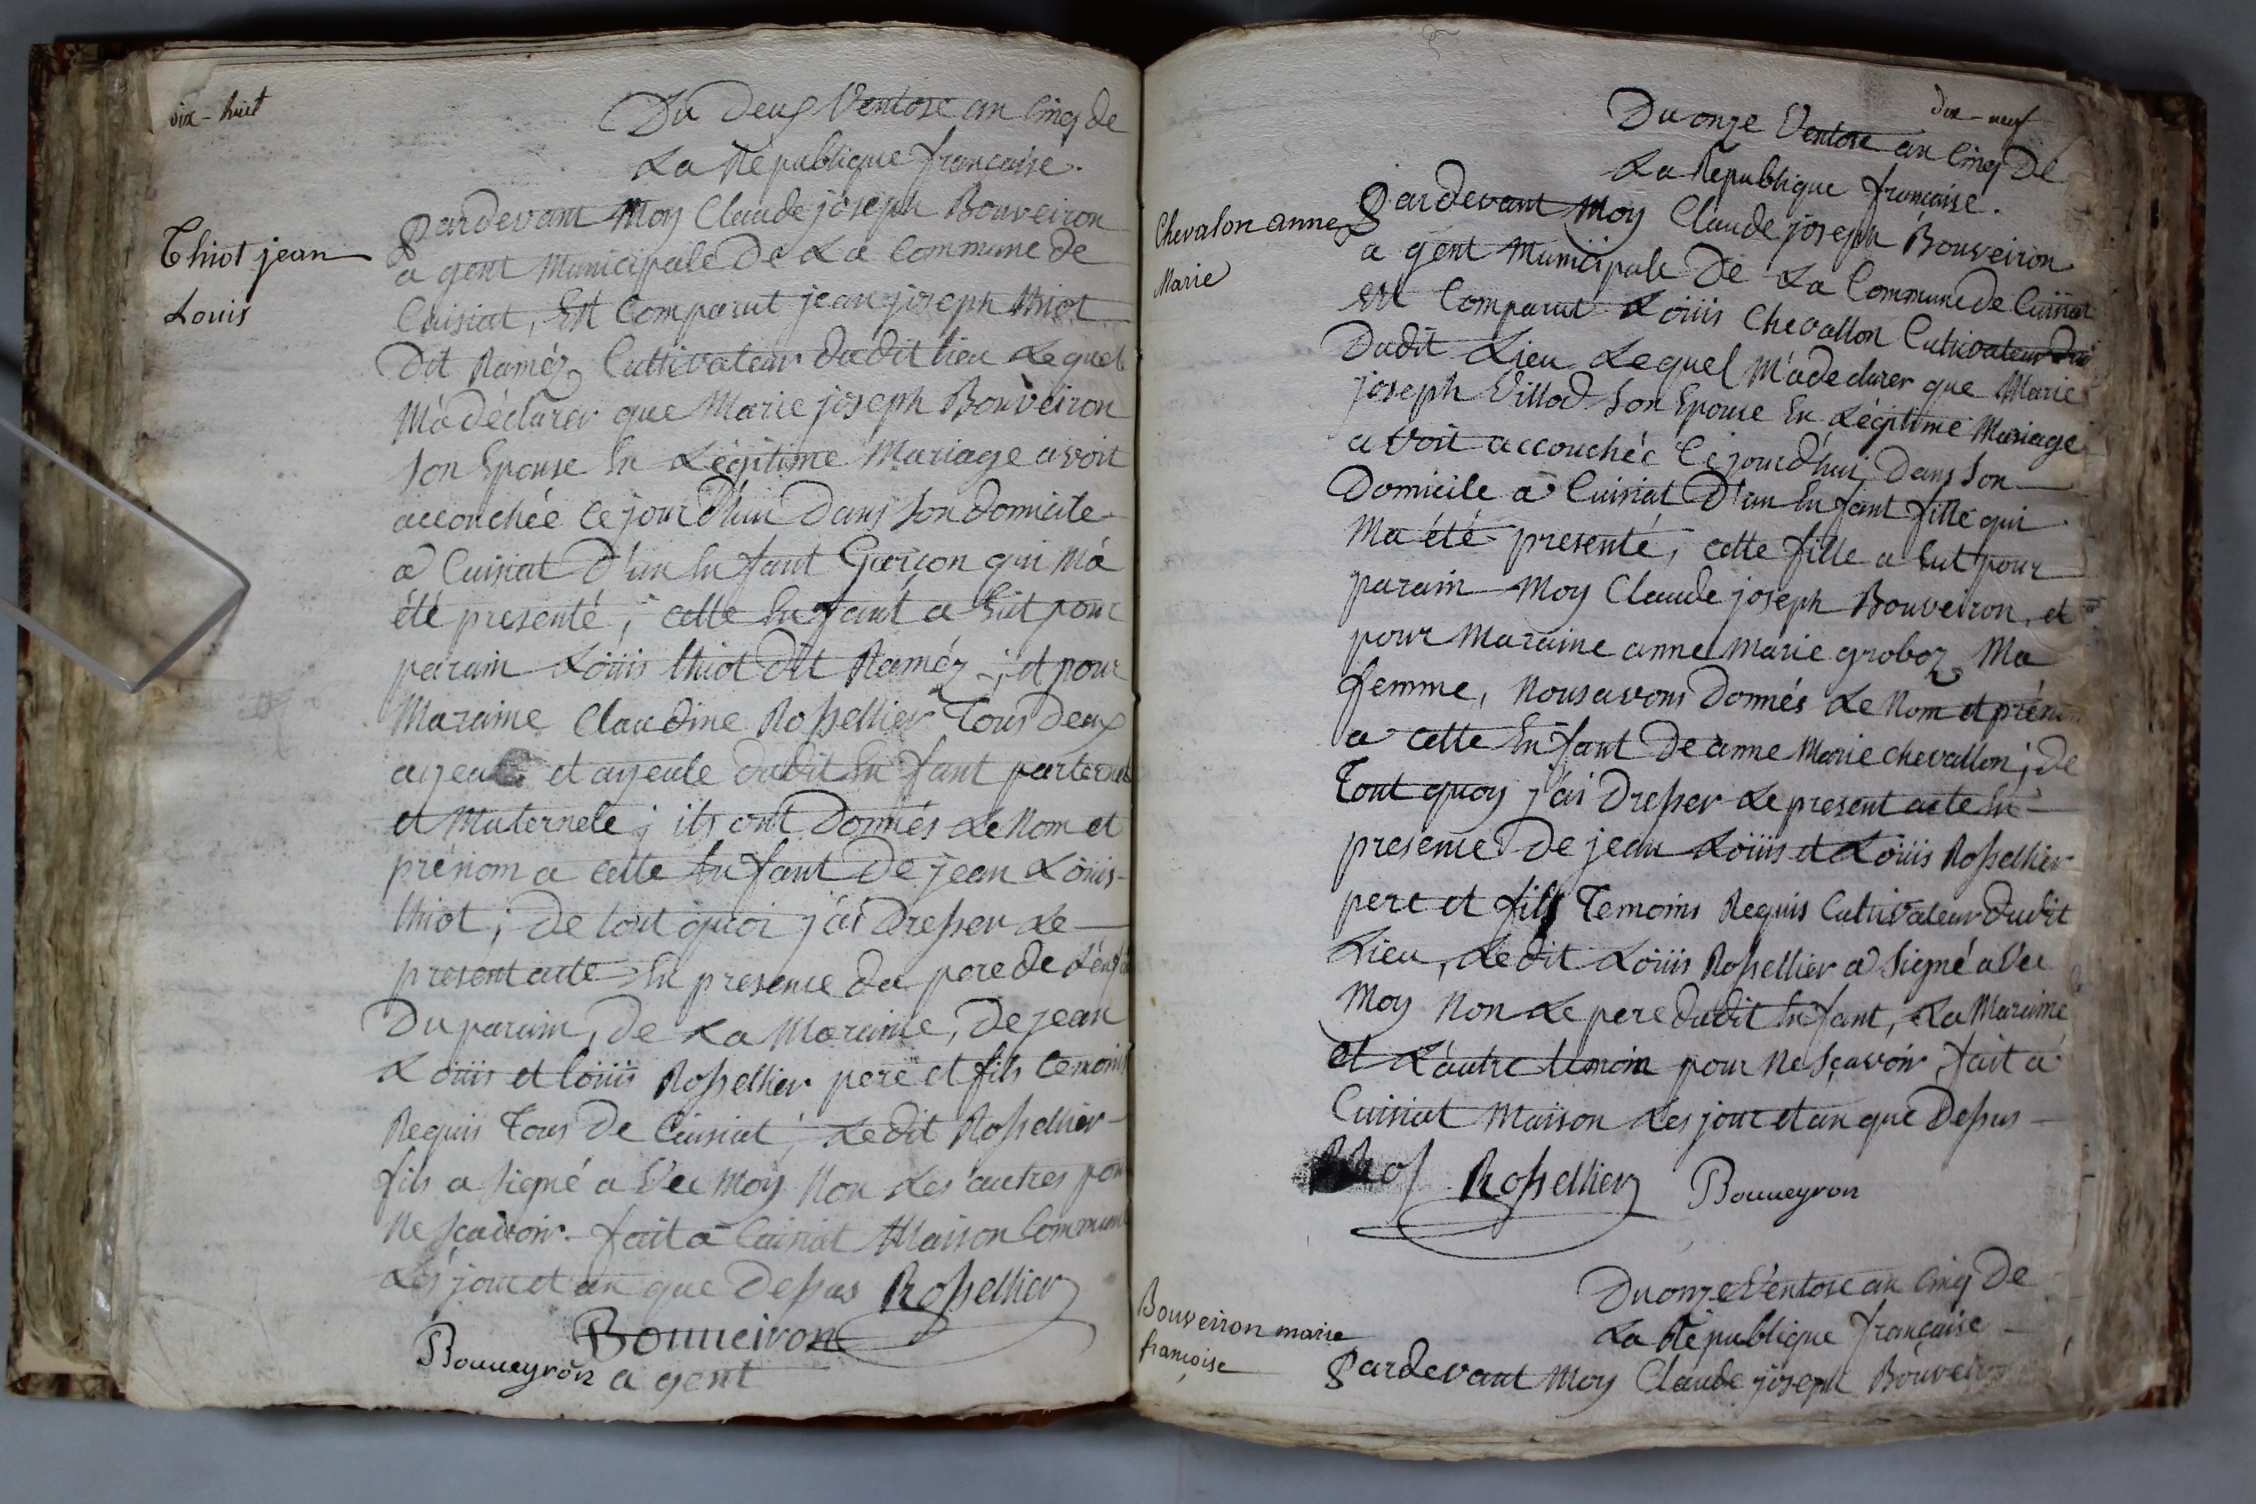 dix-huit
Du deux Ventose an cinq de
La République française.
Thiot jean
Louis
pardevant Moy Claude joseph Bouveiron
agent Municipale De La Commune de
Cuisiat, Est Comparut jean joseph thiot
Dit Raméz Cultivateur dudit lieu Lequel
M'a déclarer que Marie joseph Bouveiron
Son Epouse En Légitime Mariage avoit
accouchée Ce jourd'hui Dans Son domicile
a Cuisiat D'un Enfant Garçon qui M'a
été presenté ; cette Enfant a Eut pour
parain Loüis thiot dit Raméz ; et pour
Maraine Claudine Rossellier Tous Deux
ayeul et ayeule dudit Enfant parternel
et Maternele ; ils ont Donnés Le Nom et
prénom a cette Enfant De jean Loüis
thiot ; De tout quoi j'ai Dresser Le
present acte En presence du pere de L'enfan
Du parain, de La Maraine, De jean
Loüis et Loüis Rossellier pere et fils temoins
Requis Tous De Cuisiat ; Ledit Rossellier
fils a Signé avec Moy Non Les autres pour
Ne Scavoir. fait a Cuisiat Maison Commune
Les jour et an que Dessus Rossellier
Bouueiron
Bouueyron agent
dix-neuf
Du onze Ventose an Cinq De
La Republique francaise.
Chevalon anne
Marie
Pardevant Moy Claude joseph Bouveiron
agent Municipale De La Commune de Cuisiat
est Comparut Loüis Chevallon Cultivateur
Dudit Lieu Lequel M'a declarer que Marie
joseph Villod Son Epouse En Légitime Mariage
avoit accouchée Cejourd'hui Dans Son
Domicile a Cuisiat D'un Enfant fille qui
Ma été presenté, cette fille a Eut pour
parain Moy Claude joseph Bouveiron, et
pour Maraine anne Marie groboz Ma
femme, Nous avons Donnés Le Nom et prénom
a cette Enfant De anne Marie chevallon ; de
Tout quoy j'ai Dresser Le present acte En
presence De jean Loüis et Loüis Rossellier
pere et fils Temoins Requis Cultivateur dudit
Lieu, Ledit Loüis Rossellier a Signé avec
Moy Non Le pere dudit Enfant, La Maraine
et L'autre temoin pour Ne Sçavoir, fait a
Cuisiat Maison Les jour et an que Dessus
Rossellier Bouueyron
Du onze Ventose an Cinq De
La République française
Bouveiron marie
françoise
Pardevant Moy Claude joseph Bouveiron